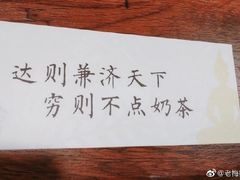 达则兼济天下
穷则不点奶茶